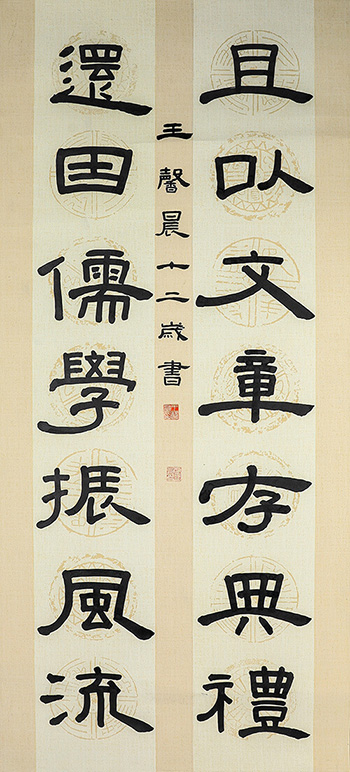 且以文章存典禮
還因儒學振風流
王馨晨十二歲書